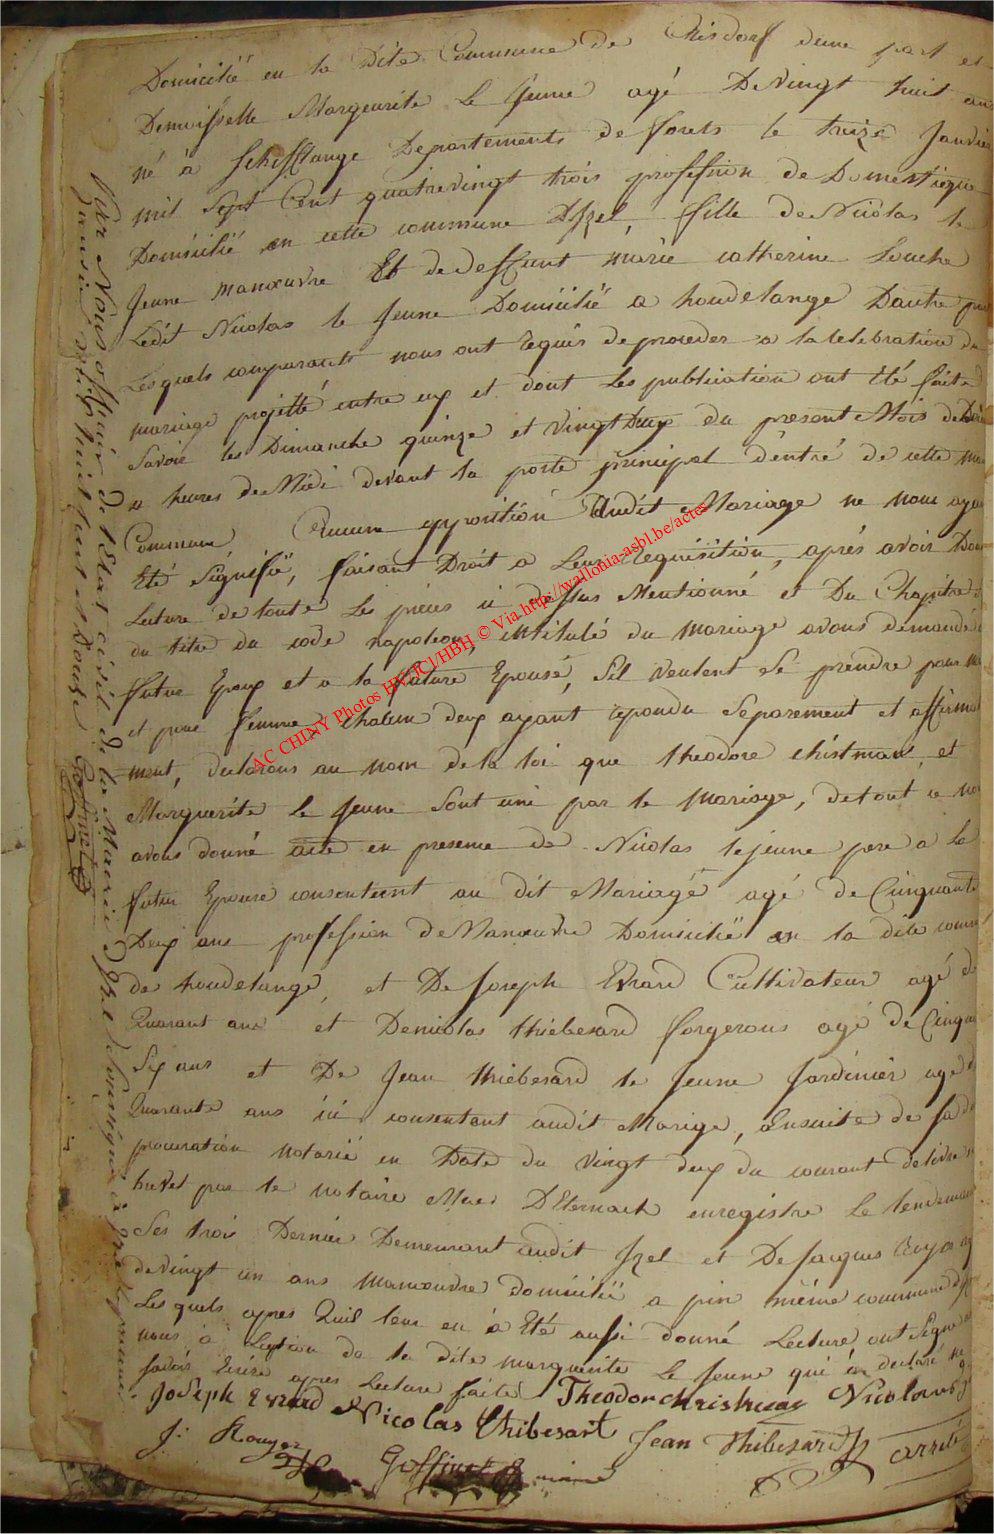 Domicilié en la Dite Commune de Crisdorf dune part et
Demoisselle Margeurite Le Jeune agé De Vingt huit ans
né a Schifflange Departements de forets le treize Janvier
mil Sept Cent quatrevingt trois profession de Domestique
Domicilié en cette commune D'Izel, fille de Nicolas le
Jeune manoeuvre Et de deffunt marie catherine Louche
Ledit Nicolas le Jeune Domicilié a houdelange Dautre part
Lesquels comparants nous ont requis de proceder a la celebration du
mariage projetté entre eux et dont les publication ont été faite
Savoir les Dimanche quinze et vingt Deux du present Mois de
a heures de Midi devant la porte principal d'entré de cette
Commune Aucune opposition Audit Mariage ne nous ayant
Eté Signifié, faisant Droit a Leur Requisition, après avoir Donné
Lecture de toute Les pièces ci dessus Mentionné et Du Chapitre
du titre du code napoleon, intitulé du mariage avons demandé
futur Epoux et a la future Epouse, Sil veulent Se prendre pour
et pour femme chacun deux ayant repondu Separement et affirmati
ment, declarons au nom de la loi que theodore christman, et
Marguerite le Jeune Sont uni par le mariage, de tout ce
avons donné acte en presence de Nicolas lejeune pere a la
futur Epouse consentent au dit Mariage agé de Cinquante
Deux ans profession de Manoeuvre Domicilié en la dite
de houdelange, et De Joseph Evrard Cultivateur agé de
Quarant ans et De nicolas thiebesard forgerons agé de Cinquante
Six ans et De Jean thiebesard le Jeune Jardinier agé de
Quarante ans ici consentant audit Mariage, Ensuite de
procuration notarié en Date du vingt deux du courant delivré
brevet par le notaire D'Eternach enregistre Le lendemain
Ses trois Dernier Demeurant audit Izel et De Jacques
de vingt un ans manoeuvre domicilié a pin même commune
Les quels apres Quil leur en a Eté aussi donné Lecture, ont Signé
nous a Leption de la dite marguerite Le Jeune qui a declaré ne
Savoir Ecrire apres Lecture faite
Joseph Evrard Nicolas Thibesart Theodor christman Nicolaus
Jean Thibesard arrêté
Goffinet maire
Par Nous officier de l'Etat civil de la Mairie d'Izel Soussigné à Izel le premier
Janvier mil huit cent et Douze Goffinet
AC CHINY Photos HV/JCJ/HBH © Via http://wallonia-asbl.be/actes